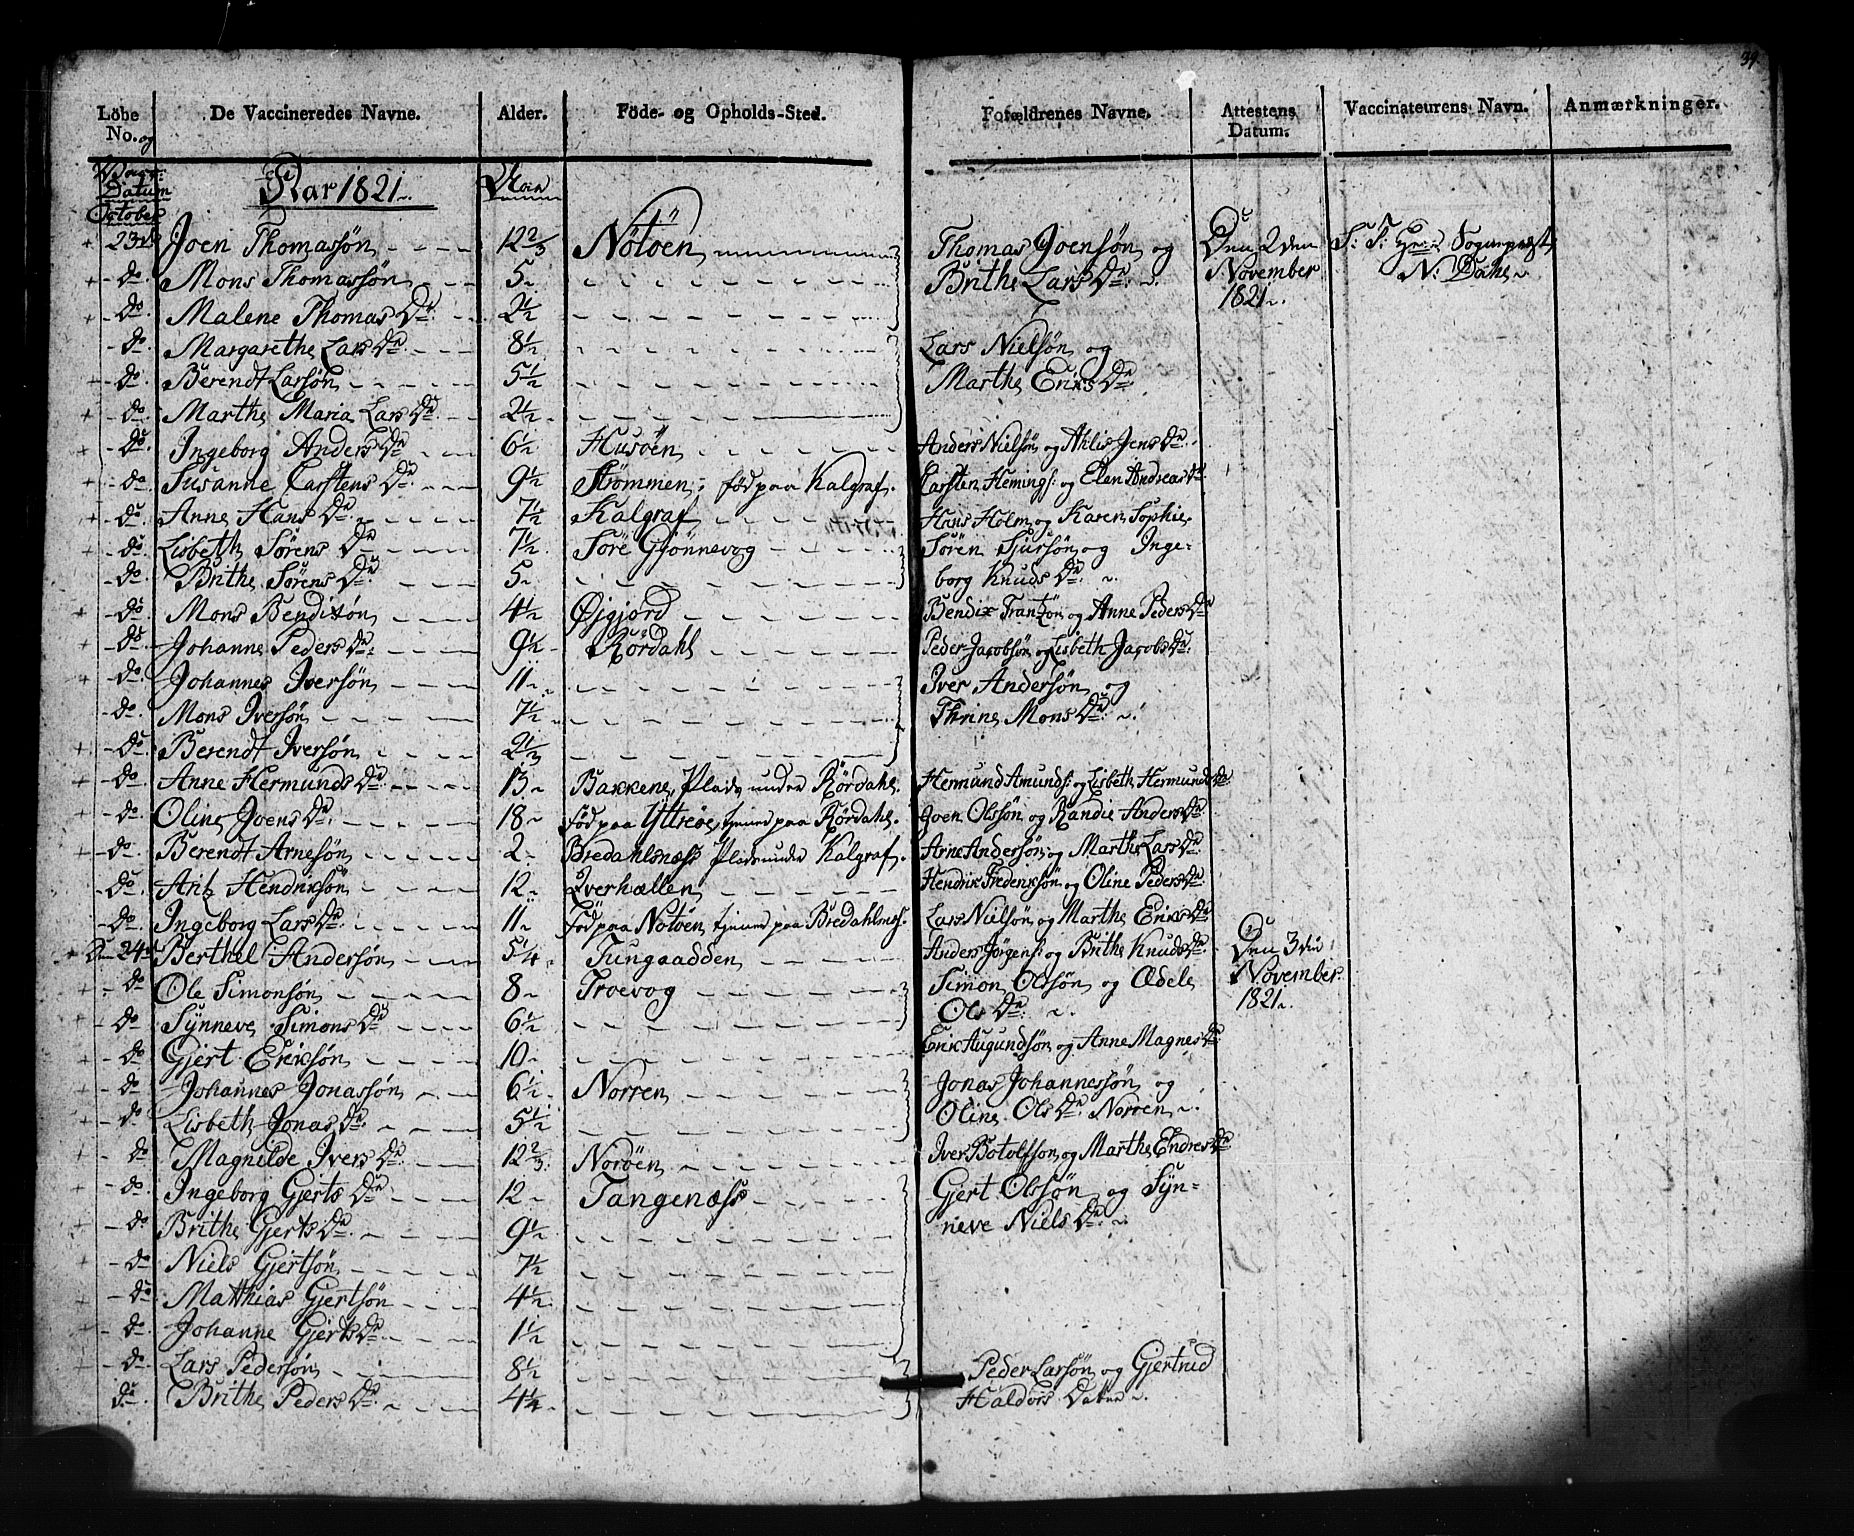 34
Löbe No. og De Vaccineredes Navne. Alder. Föde- og Opholds-Sted. Forældrenes Navne. Attestens Datum. Vaccinateurens Navn. Anmærkninger.
Datum Aar 1821.
October
+ 23de Joen Thomassön 12 2/3 Nötöen Thomas Joensön og Den 2den S: T: Hr: Sogneprest
+ - do Mons Thomassön 5 Brithe Lars Dr. November N. Dahl
+ - do Malene Thomas Dr 2 1/2 1821.
- do Margarethe Lars Dr 8 1/2 Lars Nielsön og
+ - do Berendt Larsön 5 1/2 Marthe Eriks Dr
+ - do Marthe Maria Lars Dr 2 1/2
+ - do Ingeborg Anders Dr 6 1/2 Husöen Anders Nielsön og Ahlis Jens Dr.
+ - do Susanne Carstens Dr 9 1/2 Strömmen, föd paa Kalgraf. Carsten Hemings: og Elen Andreas Dr
+ - do Anne Hans Dr 7 1/2 Kalgraf Hans Holm og Karen Sophie
+ - do Lisbeth Sörens Dr 7 1/2 Sörë Gjönnevog Sören Sjursön og Inge-
- do Brithe Sörens Dr 5 borg Knuds Dr.
+ - do Mons Bendixön 4 1/2 Øigjord Bendix Frantzön og Anne Peders Dr
+ - do Johanne Peders Dr 9 1/2 Rördahl Peder Jacobsön og Lisbeth Jacobs Dr.
+ - do Johannes Iversön 11 Iver Andersön og
- do Mons Iversön 7 1/2 Thrine Mons Dr.
+ - do Berendt Iversön 2 1/3
+ - do Anne Hermunds Dr 13 Bakkene, Plads under Rördahl. Hermund Amunds: og Lisbeth Hermunds Dr
+ - do Oline Joens Dr 18 föd paa Yttröe, tjener paa Rördahl. Joen Olssön og Randie Anders Dr
+ - do Berendt Arnesön 2 Bredahlsnæss Plads under Kalgraf. Arne Andersön og Marthe Lars Dr
- do Aritz Hendriksön 12 Qverhællen Hendrik Frederiksön og Oline Peders Dr
- do Ingeborg Lars Dr 11 Föd paa Nötöen, tjener paa Bredahlsnæs. Lars Nielsön og Marthe Eriks Dr
+ Den 24de Berthel Andersön 5 1/4 Tungaadden Anders Jörgens: og Brithe Knuds Dr. Den 3die
+ - do Ole Simonsön 8 Troevog Simon Olssön og Ædele November
+ - do Synneve Simons Dr 6 1/2 Ols Dr. 1821.
+ - do Gjert Eriksön 10 Erik Augundsön og Anne Magnes Dr
+ - do Johannes Jonassön 6 1/2 Norren Jonas Johannessön og
- do Lisbeth Jonas Dr 5 1/2 Oline Ols Dr Norren.
- do Magnilde Ivers Dr 12 2/3 Noröen Iver Botolfsön og Marthe Endres Dr
+ - do Ingeborg Gjerts Dr 12 Tangenæss Gjert Olssön og Syn-
+ - do Brithe Gjerts Dr. 9 1/2 neve Niels Dr.
+ - do Niels Gjertsön 7 1/2
+ - do Matthias Gjertsön 4 1/2
+ - do Johanne Gjerts Dr 1 1/2
+ - do Lars Pedersön 8 1/2 Peder Larsön og Gjertrud
do Brithe Peders Dr. 4 1/4 Haldors Datter